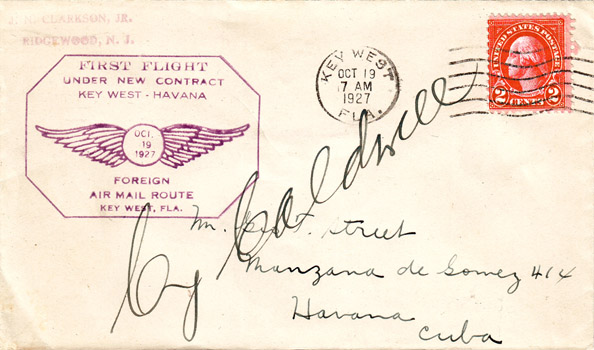 J. H. CLARKSON, JR.
RIDGEWOOD, N. J.
FIRST FLIGHT
UNDER NEW CONTRACT
KEY WEST - HAVANA
OCT.
19
1927
FOREIGN
AIR MAIL ROUTE
KEY WEST, FLA.
KEY WEST
OCT 19
7 AM
1927
FLA.
UNITED STATES POSTAGE
2 CENTS 2
Cy Caldwell
Mr. Street
Manzana de Gomez 414
Havana
Cuba